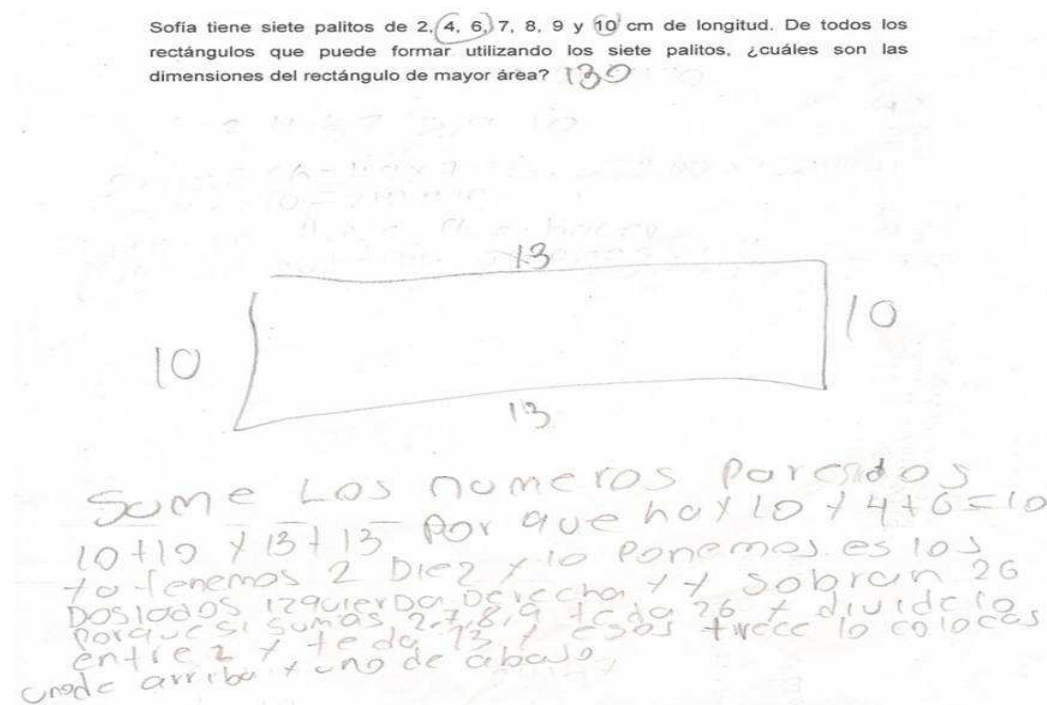 Sofía tiene siete palitos de 2, 4, 6, 7, 8, 9 y 10 cm de longitud. De todos los
rectángulos que puede formar utilizando los siete palitos, ¿cuáles son las
dimensiones del rectángulo de mayor área? 130
13
10
10
13
Sume Los numeros
10+10 y 13+13 Por que hay 10 y 4+6=10
tenemos 2 Diez y lo Ponemos es los
Dos lados izquierDa Derecha y y sobran 26
Porque si sumas 2,7,8,9 te da 26 y dividelo
entre 2 y te da 13 y esos trece lo colocas
uno de arriba y uno de abajo